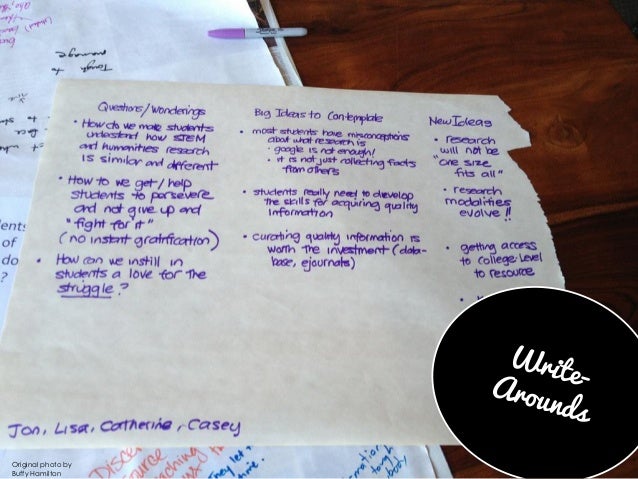 Questions/Wonderings
• How do we make students
understand how STEM
and humanities research
is similar and different
• How to we get/help
students to persevere
and not give up and
"fight for it"
(no instant gratification)
• How can we instill in
students a love for the
struggle?
Big Ideas to Contemplate
• most students have misconceptions
about what research is
• google is not enough!
• it is not just collecting facts
from others
• students really need to develop
the skills for acquiring quality
information
• curating quality information is
worth the investment (data-
base, ejournals)
New Ideas
• research
will not be
"one size
fits all"
• research
modalities
evolve!!
• getting access
to college level
to resource
Jon, Lisa, Catherine, Casey
Write-
Arounds
Original photo by
Buffy Hamilton
Tough to
manage
of
do
?
they let
time.
tough
body